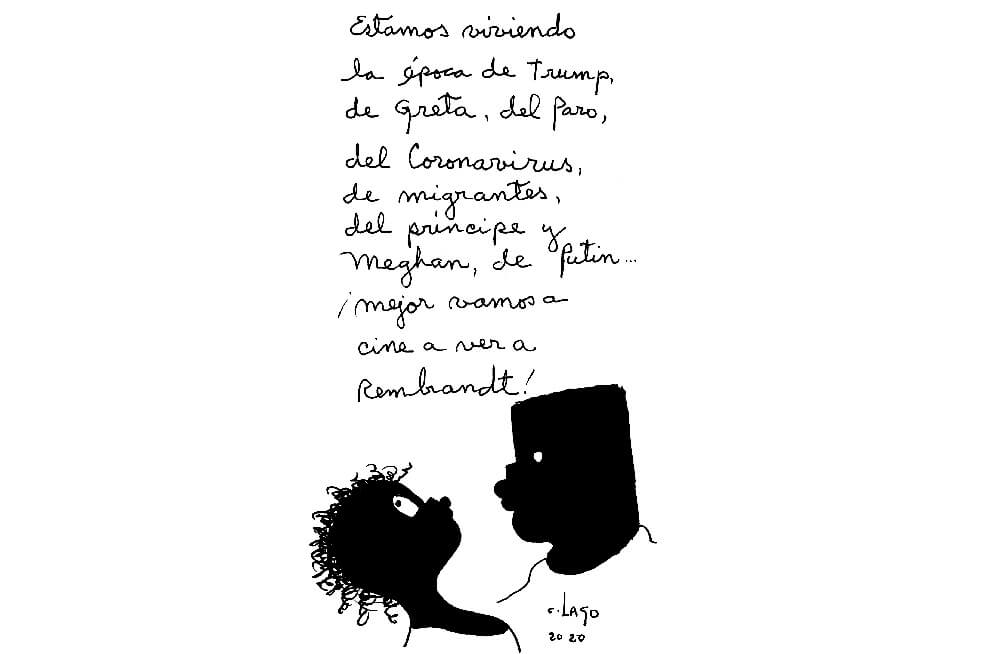 Estamos viviendo
la época de Trump,
de Greta, del Paro,
del Coronavirus,
de migrantes,
del príncipe y
Meghan, de Putin...
¡mejor vamos a
cine a ver a
Rembrandt!
c. LAGO
2020